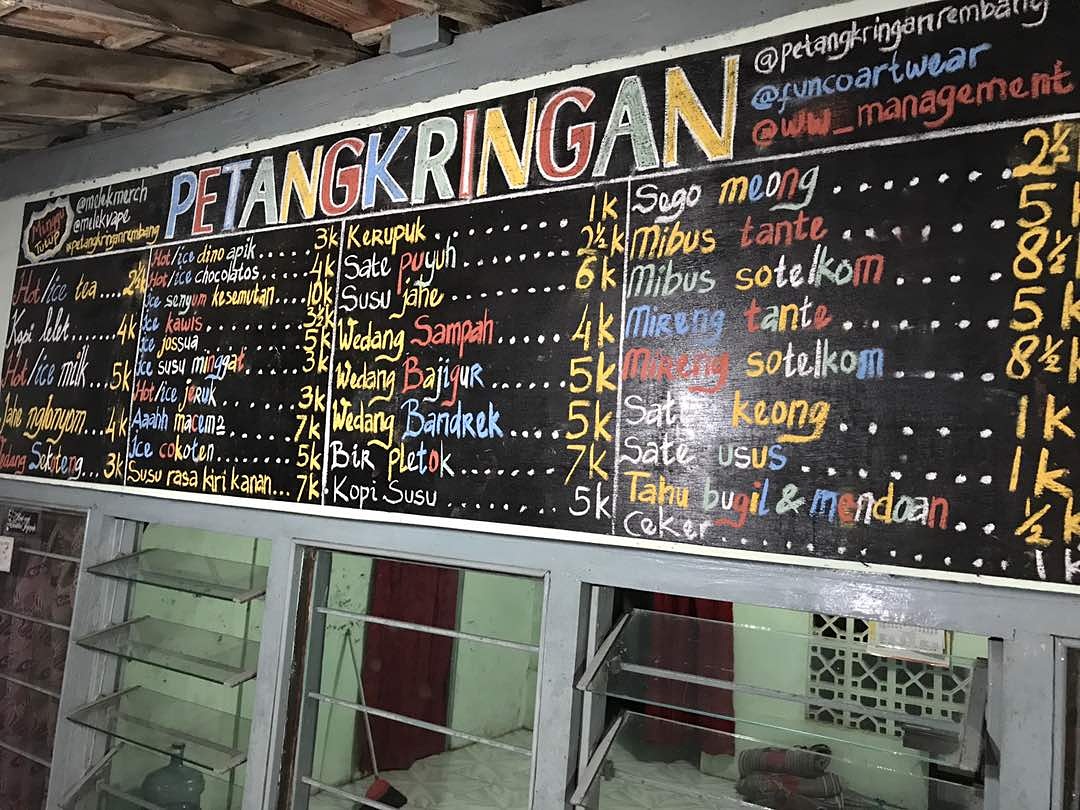 PETANGKRINGAN
@petangkringanrembang
@funcoartwear
@ww_management
Minggu
Tutup
@melekmerch
@melekvape
@petangkringanrembang
Hot/ice tea....2½k
Kopi lelet 4k
Hot/ice milk...5k
Jahe nglonyom..4k
Wedang Sekoteng...3k
Hot/ice dino apik......3k
Hot/ice chocolatos....4k
Ice senyum kesemutan....10k
Ice kawis..........3½k
Ice jossua..........5k
Ice susu minggat....3k
Hot/ice jeruk.......3k
Aaahh macem2.......7k
Ice cokoten........5k
Susu rasa kiri kanan...7k
Kerupuk..........1k
Sate puyuh.......2½k
Susu jahe........6k
Wedang Sampah.....4k
Wedang Bajigur.....5k
Wedang Bandrek.....5k
Bir pletok........7k
Kopi Susu 5k
Sego meong.......2½
Mibus tante......5k
Mibus sotelkom......8½k
Mireng tante......5k
Mireng sotelkom.....8½k
Sate keong.......1k
Sate usus........1k
Tahu bugil & mendoan..½k
Ceker..........1k